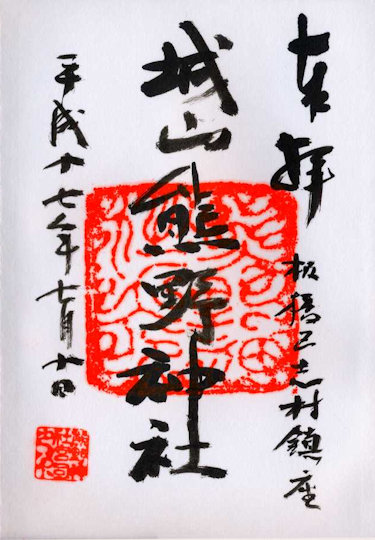 奉拝
板橋区志村鎮座
城山熊野神社
平成十七年七月十日